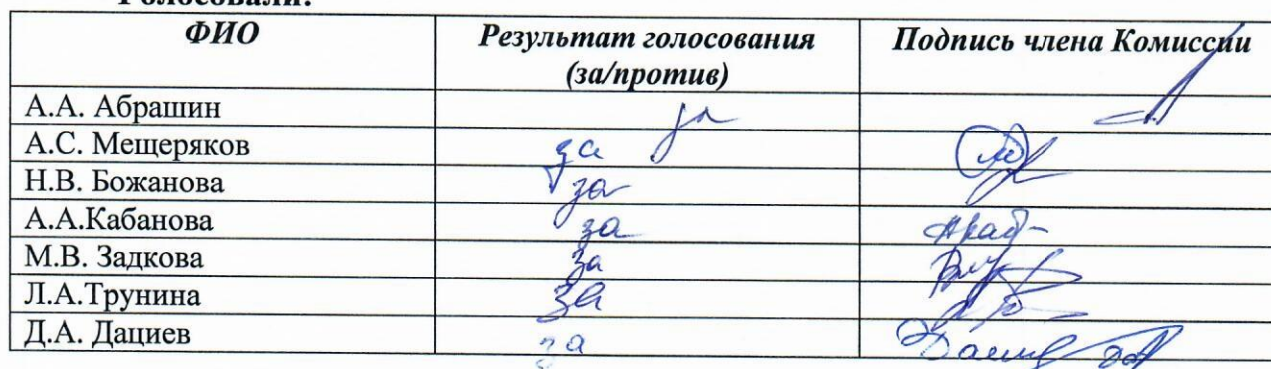 Голосовали:
ФИО Результат голосования Подпись члена Комиссии
(за/против)
А.А. Абрашин за
А.С. Мещеряков за
Н.В. Божанова за
А.А.Кабанова за
М.В. Задкова за
Л.А.Трунина за
Д.А. Дациев за